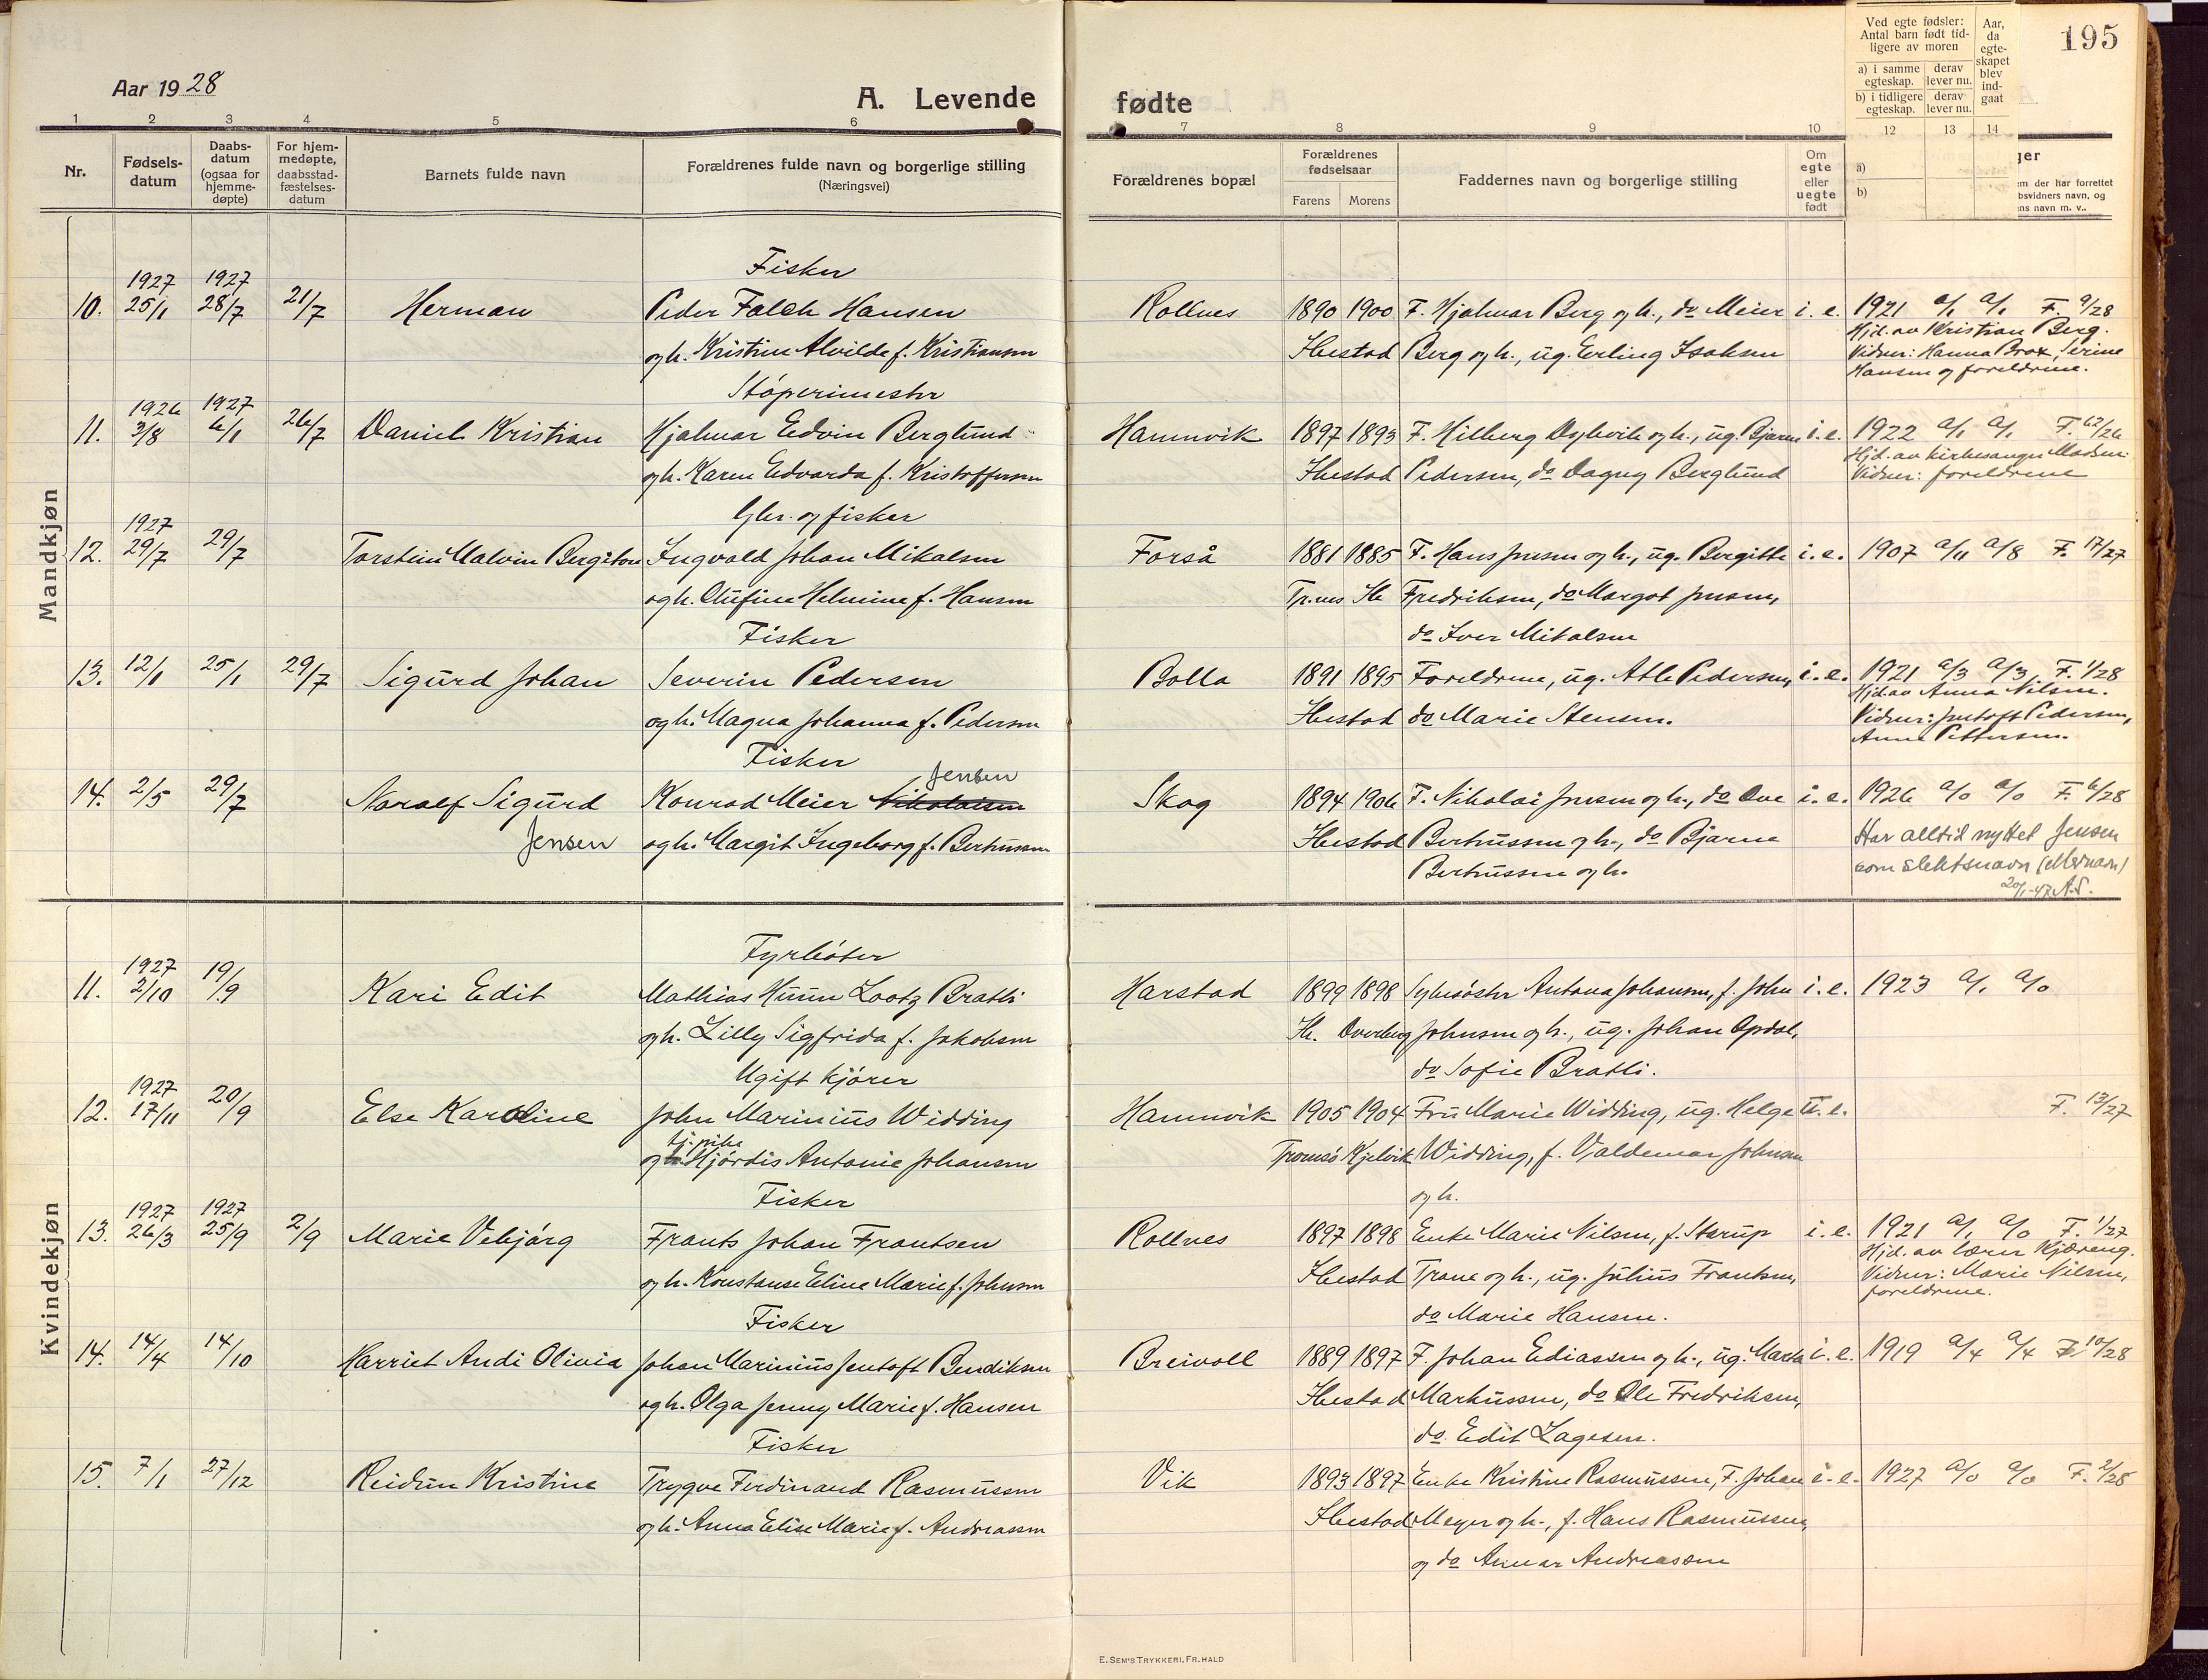 Aar 1928
A. Levende
1 2 3 4 5 6
Nr.
Fødsels-
datum
Daabs-
datum
(ogsaa for
hjemme-
døpte)
For hjem-
medøpte,
daabsstad-
fæstelses-
datum
Barnets fulde navn
Forældrenes fulde navn og borgerlige stilling
(Næringsvei)
Mandkjøn
Fisker
1927 1927
10. 25/1 28/7 21/7 Herman Peder Falch Hansen
og h. Kristine Alvilde f. Kristiansen
Støperimester
1926 1927
11. 3/8 6/1 26/7 Daniel Kristian Hjalmar Edvin Berglund
og h. Karen Edvarda f. Kristoffersen
Gbr. og fisker
1927
12. 29/7 29/7 Torstein Malvin Bergiton Ingvald Johan Mikalsen
og h. Olufine Helmine f. Hansen
Fisker
13. 12/1 25/1 29/7 Sigurd Johan Severin Pedersen
og h. Magna Johanna f. Pedersen
Fisker
Jensen
14. 2/5 29/7 Noralf Sigurd Konrad Meier Nikolaisen
Jensen og h. Margit Ingeborg f. Berthussen
Kvindekjøn
Fyrbøter
1927
11. 2/10 19/9 Kari Edit Mathias Hunn Lootz Bratli
og h. Lilly Sigfrida f. Jakobsen
Ugift kjører
1927
12. 17/11 20/9 Else Karoline John Marinius Widding
tj. pike
og Hjørdis Antonie Johansen
Fisker
1927 1927
13. 26/3 25/9 2/9 Marie Vebjørg Frants Johan Frantsen
og h. Konstanse Eline Marie f. Johnsen
Fisker
14. 14/4 14/10 Harriet Andi Olivia Johan Marinius Jentoft Bendiksen
og h. Olga Jenny Marie f. Hansen
Fisker
15. 7/1 27/12 Reidun Kristine Trygve Ferdinand Rasmussen
og h. Anna Elise Marie f. Andreassen
fødte
195
7 8 9 10
Forældrenes bopæl
Forældrenes
fødselsaar
Farens Morens
Faddernes navn og borgerlige stilling
Om
egte
eller
uegte
født
Ved egte fødsler:
Antal barn født tid-
ligere av moren
a) i samme
egteskap.
derav
lever nu.
b) i tidligere
egteskap.
derav
lever nu.
Aar,
da
egte-
skapet
blev
ind-
gaat
12 13 14
a)
b)
ger
em der har forrettet
bsvidners navn, og
ens navn m. v..
Rollnes 1890 1900 F. Hjalmar Berg og h., do Meier i. e. 1921 a/1 a/1 F. 9/28
Ibestad Berg og h., ug. Erling Isaksen
Hjd. av Kristian Berg.
Vidner: Hanna Brox, Serine
Hansen og foreldrene.
Hamnvik 1897 1893 F. Hilberg Dyhvik og h., ug. Bjarne i. e. 1922 a/1 a/1 F. 62/26
Ibestad Pedersen, do Dagny Berglund
Hjd. av kirkesanger Madsen.
Vidner: foreldrene
Forså 1881 1885 F. Hans Jensen og h., ug. Bergitte i. e. 1907 a/11 a/8 F. 17/27
Tr.nes Ib Fredriksen, do Margot Jensen,
do Iver Mikalsen
Bolla 1891 1895 Foreldrene, ug. Atle Pedersen, i. e. 1921 a/3 a/3 F. 1/28
Ibestad do Marie Stensen.
Hjd. av Anna Nilsen.
Vidner: Jentoft Pedersen,
Anna Pettersen.
Skog 1894 1906 F. Nikolai Jensen og h., do Ove i. e. 1926 a/0 a/0 F. 6/28
Ibestad Berthussen og h., do Bjarne
Berthussen og h.
Har alltid nyttet Jensen
som slektsnavn (etternavn)
20/1-47 A.S.
Harstad 1899 1898 Sykesøster Antona Johansen, f. John i. e. 1923 a/1 a/0
Ib. Overberg Johnsen og h., ug. Johan Opdal,
do Sofie Bratli.
Hamnvik 1905 1904 Fru Marie Widding, ug. Helge u. e. F. 13/27
Tromsø Kjelvik Widding, f. Valdemar Johnsen
og h.
Rollnes 1897 1898 Enke Marie Nilsen, f. Sterup i. e. 1921 a/1 a/0 F. 1/27
Ibestad Trane og h., ug. Julius Frantsen,
do Marie Hansen.
Hjd. av lærer Kjæreng.
Vidner: Marie Nilsen,
foreldrene.
Breivoll 1889 1897 F. Johan Ediassen og h., ug. Marta i. e. 1919 a/4 a/4 F. 10/28
Ibestad Markussen, do Ole Fredriksen,
do. Edit Lagesen.
Vik 1893 1897 Enke Kristine Rasmussen, F. Johan i. e. 1927 a/0 a/0 F. 2/28
Ibestad Meyer og h., f. Hans Rasmussen,
og do Annar Andreassen
E. SEM'S TRYKKERI, FR.HALD